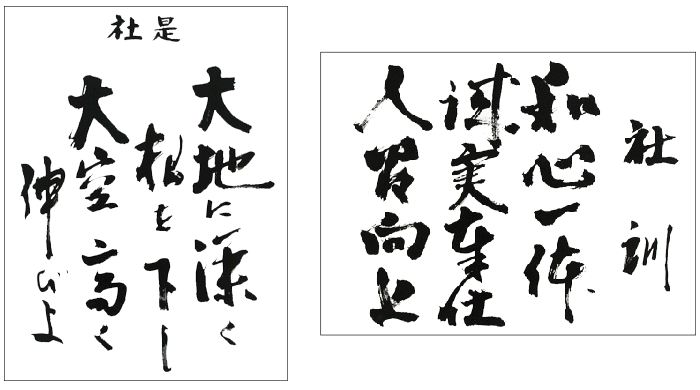 社是
大地に深く
根を下し
大空高く
伸びよ
社訓
和心一体
誠実奉仕
人 向上